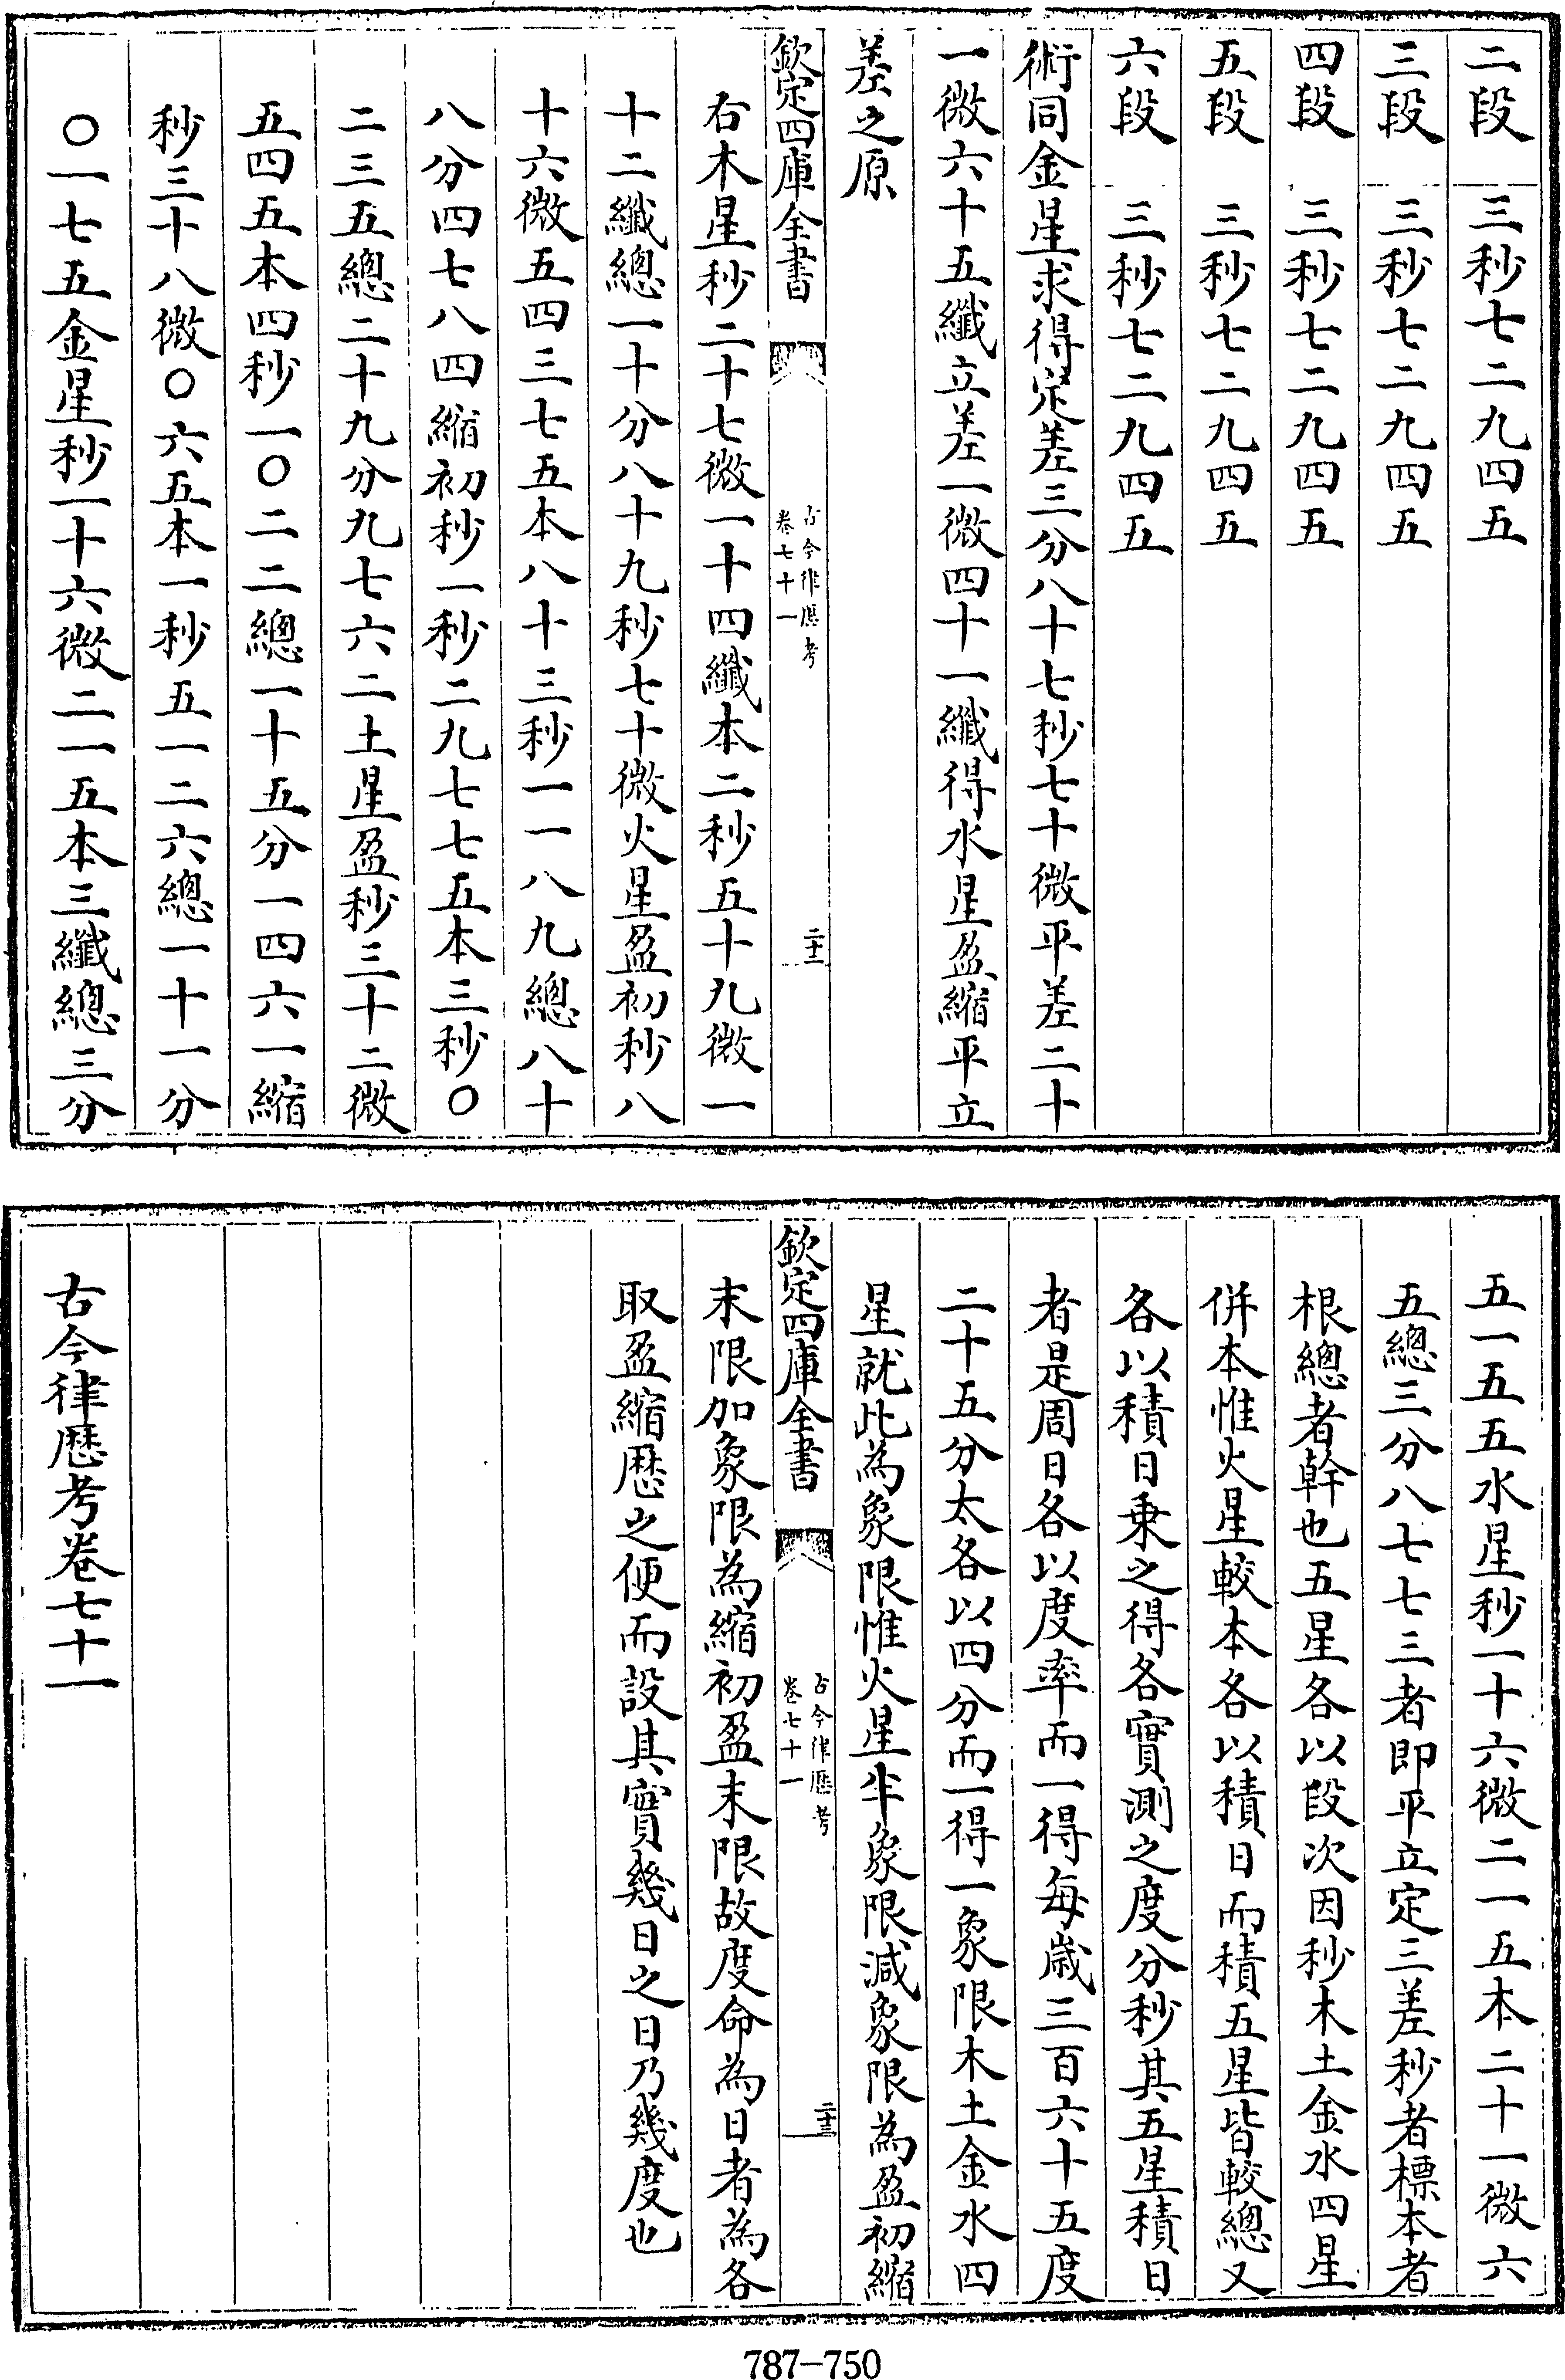 二段　三秒七二九四五
三段　三秒七二九四五
四段　三秒七二九四五
五段　三秒七二九四五
六段　三秒七二九四五
術同金星求得定差三分八十七秒七十微平差二十
一微六十五纖立差一微四十一纖得水星盈縮平立
差之原
欽定四庫全書
古今律厯考
卷七十一
二十二
右木星秒二十七微一十四纖本二秒五十九微一
十二纖總一十分八十九秒七十微火星盈初秒八
十六微五四三七五本八十三秒一一八九總八十
八分四七八四縮初秒一秒二九七七五本三秒〇
二三五總二十九分九七六二土星盈秒三十二微
五四五本四秒一〇二二總一十五分一四六一縮
秒三十八微〇六五本一秒五一二六總一十一分
〇一七五金星秒一十六微二一五本三纖總三分
五一五五水星秒一十六微二一五本二十一微六
五總三分八七七三者即平立定三差秒者標本者
根總者幹也五星各以段次因秒木土金水四星
併本惟火星較本各以積日而積五星皆較總又
各以積日乗之得各實測之度分秒其五星積日
者是周日各以度率而一得每歲三百六十五度
二十五分太各以四分而一得一象限木土金水四
星就此為象限惟火星半象限減象限為盈初縮
欽定四庫全書
古今律厯考
卷七十一
二十三
末限加象限為縮初盈末限故度命為日者為各
取盈縮厯之便而設其實幾日之日乃幾度也
古今律厯考卷七十一
787-750